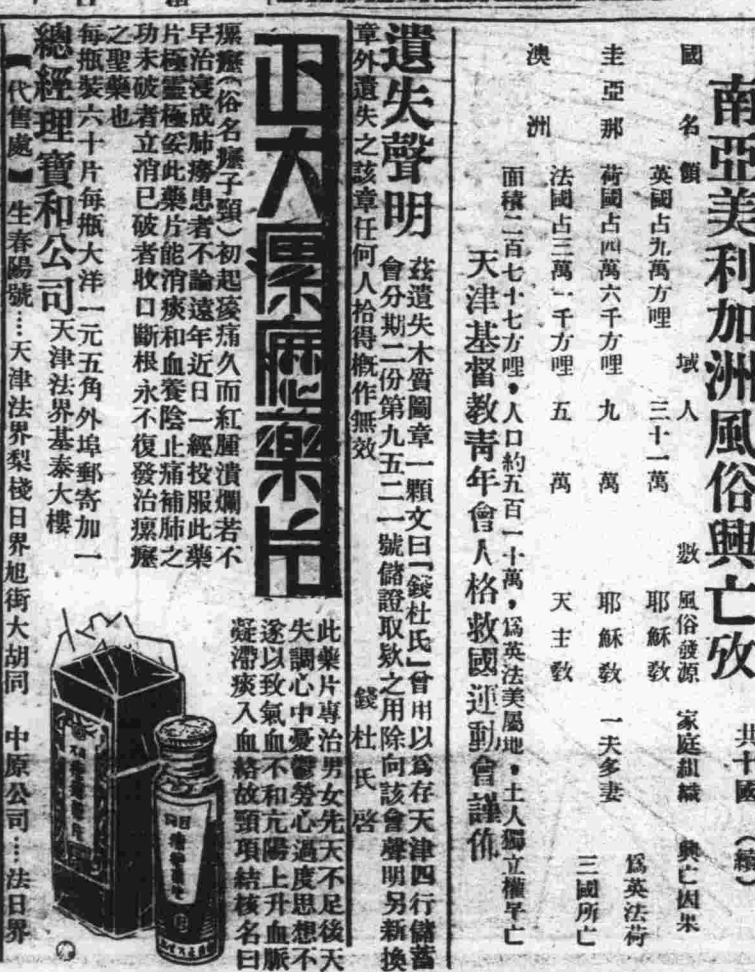 南亞美利加洲風俗興亡攷 共十國 (續)
國名 領域 人數 風俗發源 家庭組織 興亡因果
英國占九萬方哩 三十一萬 耶穌教
圭亞那 荷國占四萬六千方哩 九萬 耶穌教 一夫多妻 爲英法荷
法國占三萬一千方哩 五萬 天主教 三國所亡
澳洲 面積二百七十七方哩，人口約五百一十萬，爲英法美屬地，土人獨立權早亡
天津基督教靑年會人格救國運動會謹佈
遺失聲明
茲遺失木質圖章一顆文曰「錢杜氏」曾用以爲存天津四行儲蓄
會分期二份第九五二一號儲證取欵之用除向該會聲明另新換
章外遺失之該章任何人拾得槪作無效
錢杜氏啓
正大瘰癧藥片
此藥片專治男女先天不足後天
失調心中憂鬱勞心過度思想不
遂以致氣血不和亢陽上升血脈
凝滯痰入血絡故頸項結核名曰
瘰癧(俗名癧子頸)初起痠痛久而紅腫潰爛若不
早治寖成肺癆患者不論遠年近日一經投服此藥
片極靈極妥此藥片能消痰和血養陰止痛補肺之
功未破者立消已破者收口斷根永不復發治瘰癧
之聖藥也
每瓶裝六十片每瓶大洋一元五角外埠郵寄加一
總經理寶和公司 天津法界基泰大樓
【代售處】生春陽號…天津法界梨棧日界旭街大胡同 中原公司…法日界